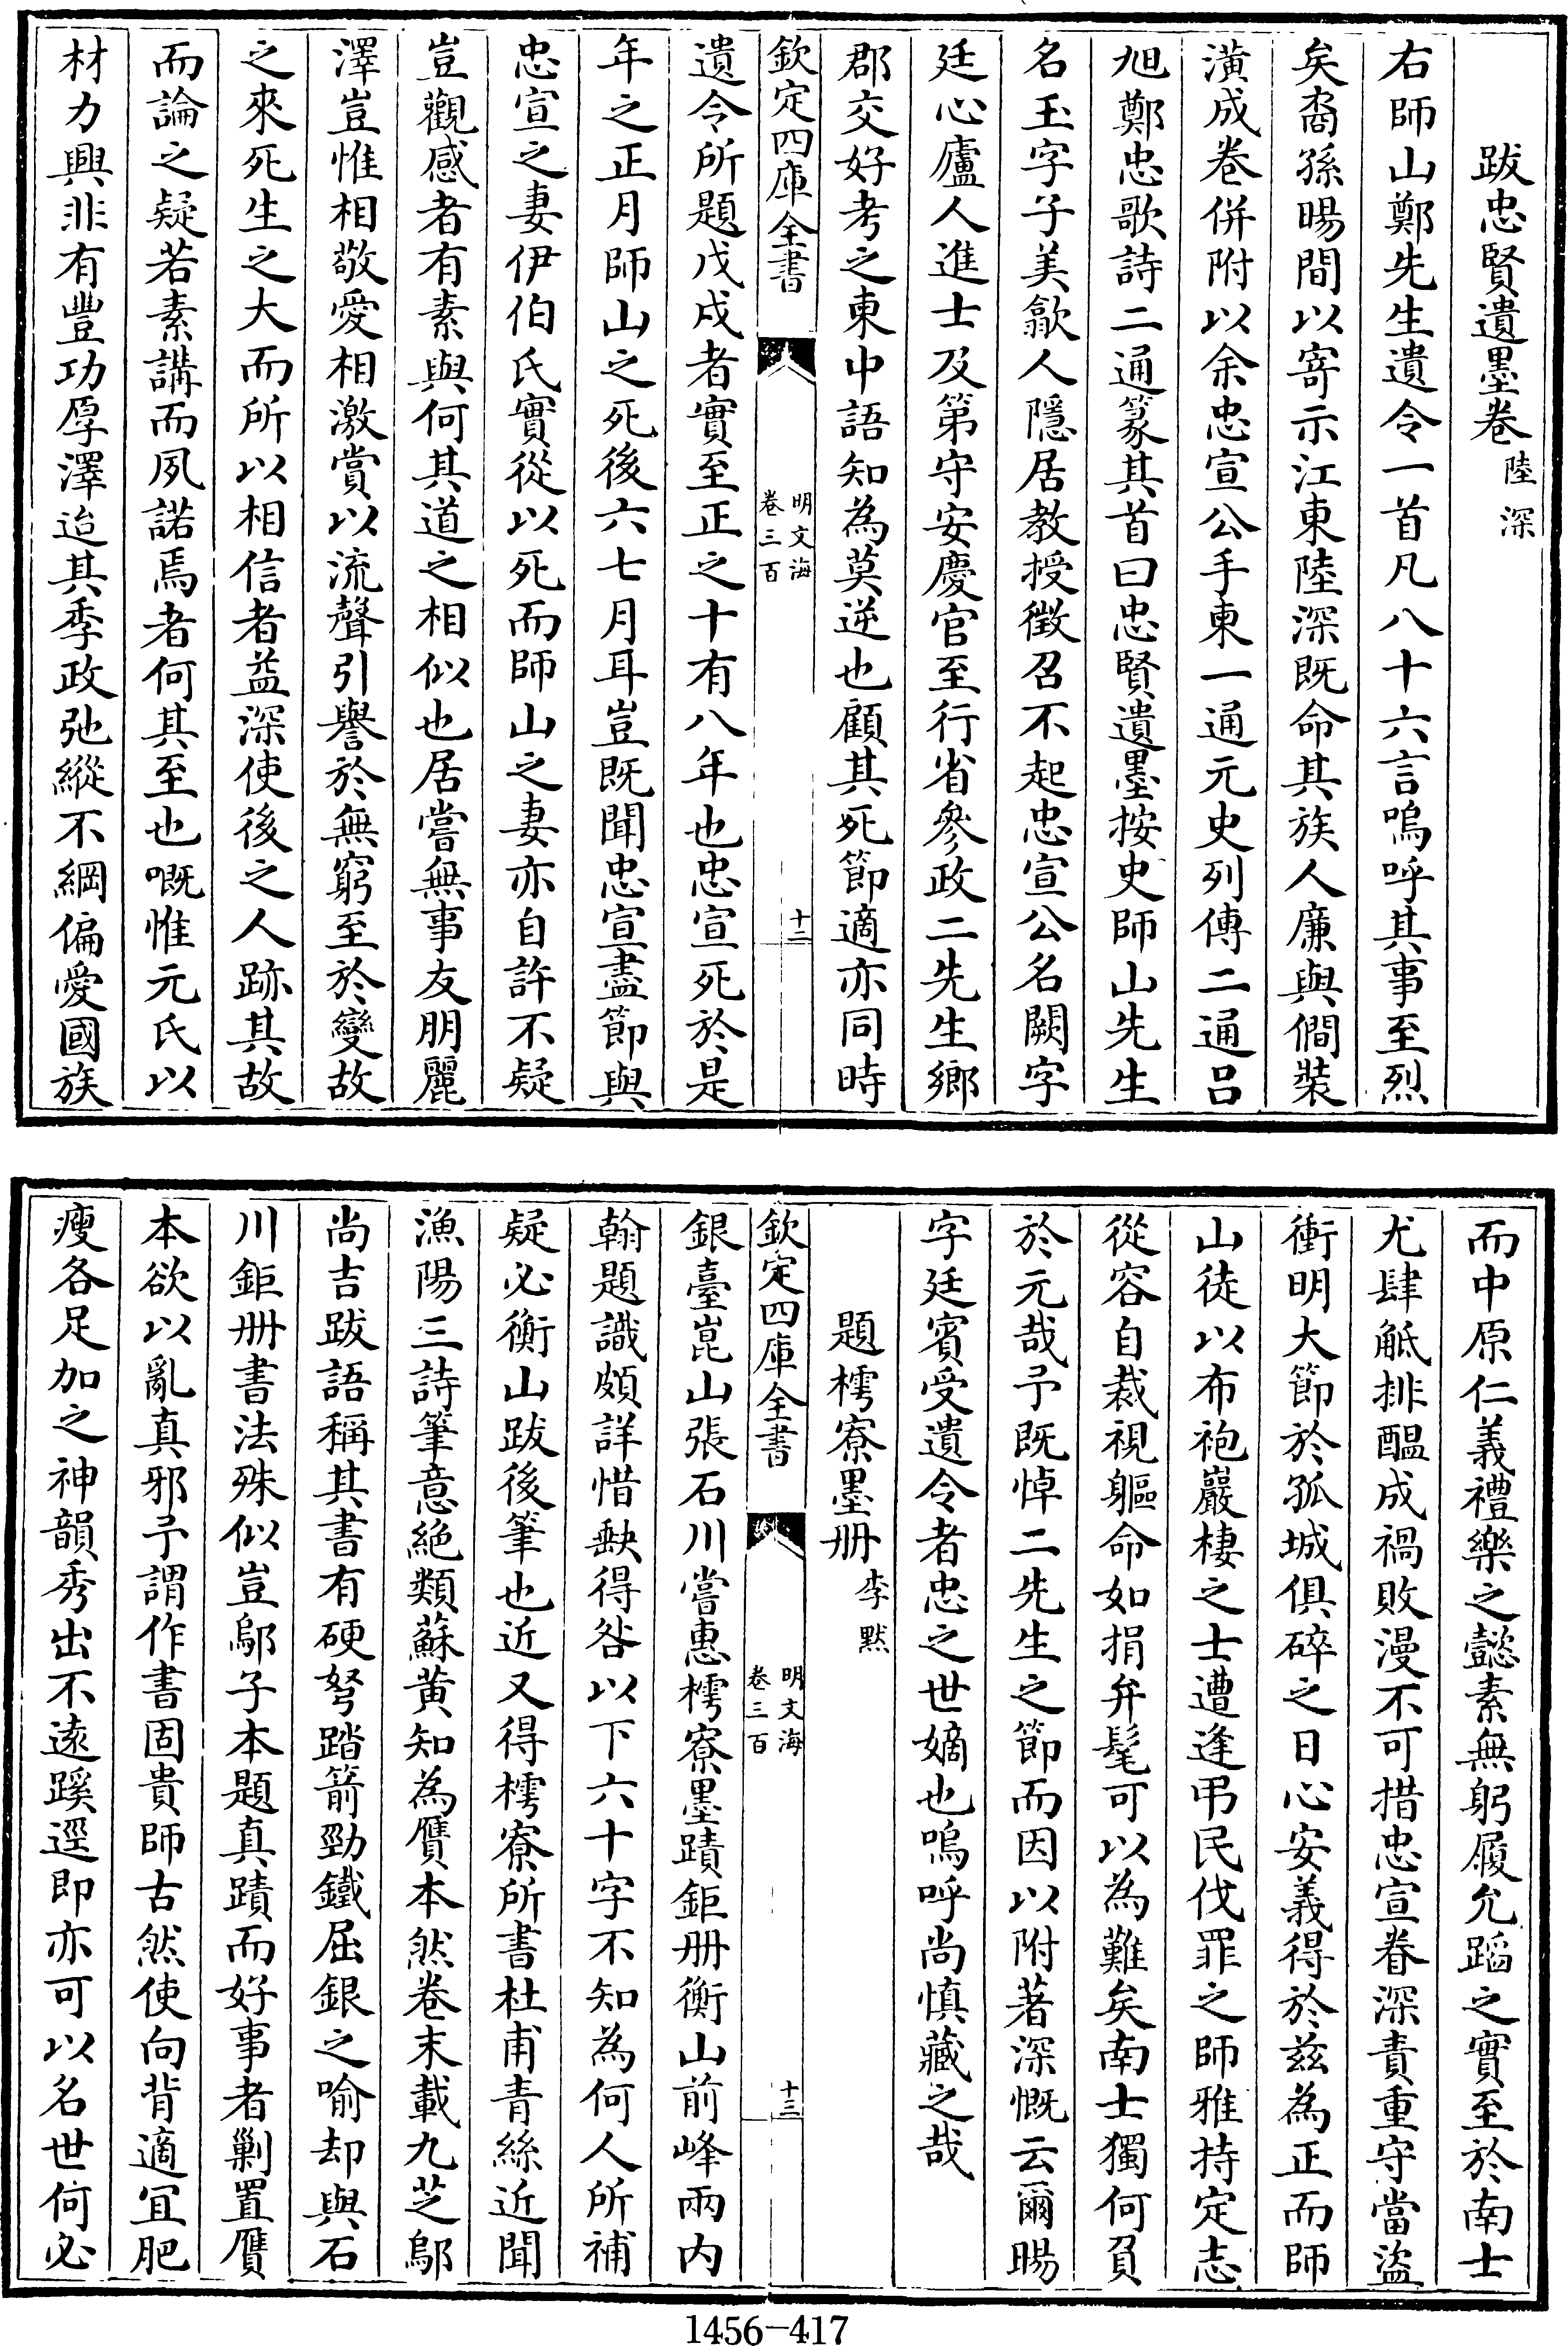 跋忠賢遺墨卷 陸深
右師山鄭先生遺令一首凡八十六言嗚呼其事至烈
矣裔孫暘間以寄示江東陸深既命其族人廉與僩裝
潢成卷併附以余忠宣公手柬一通元史列傳二通吕
旭鄭忠歌詩二通篆其首曰忠賢遺墨按史師山先生
名玉字子美歙人隱居教授徵召不起忠宣公名闕字
廷心廬人進士及第守安慶官至行省參政二先生鄉
郡交好考之柬中語知為莫逆也顧其死節適亦同時
欽定四庫全書
明文海
卷三百
十二
遺令所題戊戌者實至正之十有八年也忠宣死於是
年之正月師山之死後六七月耳豈既聞忠宣盡節與
忠宣之妻伊伯氏實從以死而師山之妻亦自許不疑
豈觀感者有素與何其道之相似也居嘗無事友朋麗
澤豈惟相敬愛相激賞以流聲引譽於無窮至於變故
之來死生之大而所以相信者益深使後之人跡其故
而論之疑若素講而夙諾焉者何其至也嘅惟元氏以
材力興非有豐功厚澤迨其季政弛縱不綱偏愛國族
而中原仁義禮樂之懿素無躬履允蹈之實至於南士
尤肆觝排醖成禍敗漫不可措忠宣眷深責重守當盜
衝明大節於孤城俱碎之日心安義得於兹為正而師
山徒以布袍巖棲之士遭逢弔民伐罪之師雅持定志
從容自裁視軀命如捐弁髦可以為難矣南士獨何負
於元哉予既悼二先生之節而因以附著深慨云爾暘
字廷賓受遺令者忠之世嫡也嗚呼尚慎藏之哉
題樗寮墨册 李默
欽定四庫全書
明文海
卷三百
十三
銀臺崑山張石川嘗惠樗寮墨蹟鉅册衡山前峰兩内
翰題識頗詳惜缺得咎以下六十字不知為何人所補
疑必衡山跋後筆也近又得樗寮所書杜甫青絲近聞
漁陽三詩筆意絶類蘇黄知為贋本然卷末載九芝鄔
尚吉跋語稱其書有硬弩踏箭勁鐵屈銀之喻却與石
川鉅册書法殊似豈鄔子本題真蹟而好事者剿置贋
本欲以亂真邪予謂作書固貴師古然使向背適宜肥
瘦各足加之神韻秀出不遠蹊逕即亦可以名世何必
1456-417